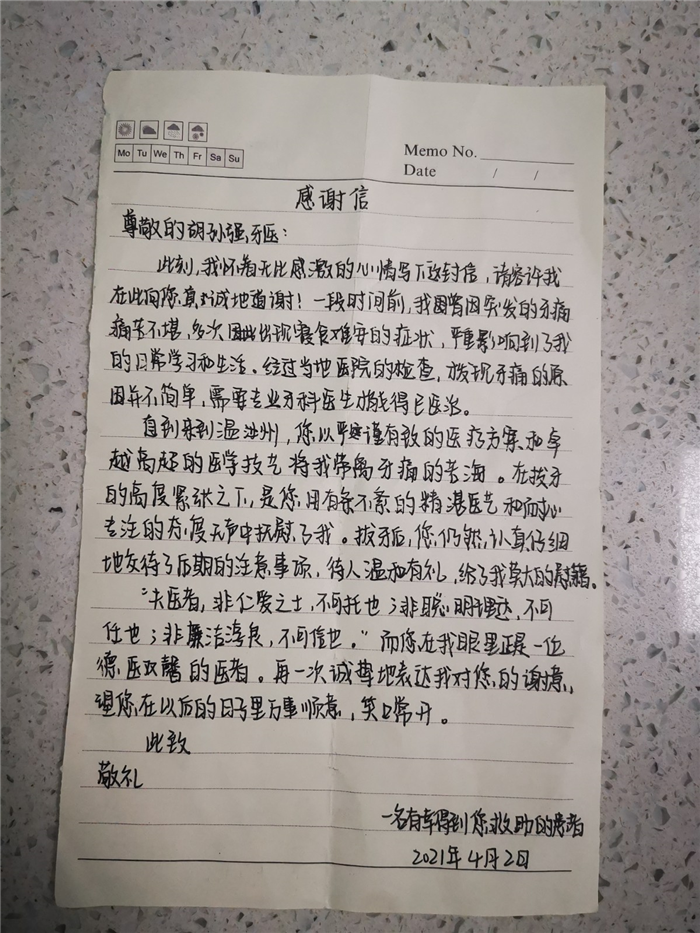 Mo Tu We Th Fr Sa Su
Memo No.
Date / /
感谢信
尊敬的胡孙强牙医:
此刻,我怀着无比感激的心情写下这封信,请容许我
在此向您真诚地道谢!一段时间前,我因曾因突发的牙痛
痛苦不堪,多次因此出现寝食难安的症状,严重影响到了我
的日常学习和生活。经过当地医院的检查,发现牙痛的原
因并不简单,需要专业牙科医生才能得已医治。
直到来到温州,您以严谨有致的医疗方案和卓
越高超的医学技艺将我带离牙痛的苦海。在拔牙
的高度紧张之下,是您用有条不紊的精湛医艺和耐心
专注的态度无声中抚慰了我。拔牙后,您仍然认真仔细
地交待了后期的注意事项,待人温和有礼,给了我莫大的慰藉。
“夫医者,非仁爱之士,不可托也;非聪明理达,不可
任也;非廉洁淳良,不可信也。”而您在我眼里正是一位
德医双馨的医者。再一次诚挚地表达我对您的谢意,
望您在以后的日子里万事顺意,笑口常开。
此致
敬礼
一名有幸得到您救助的患者
2021年4月2日